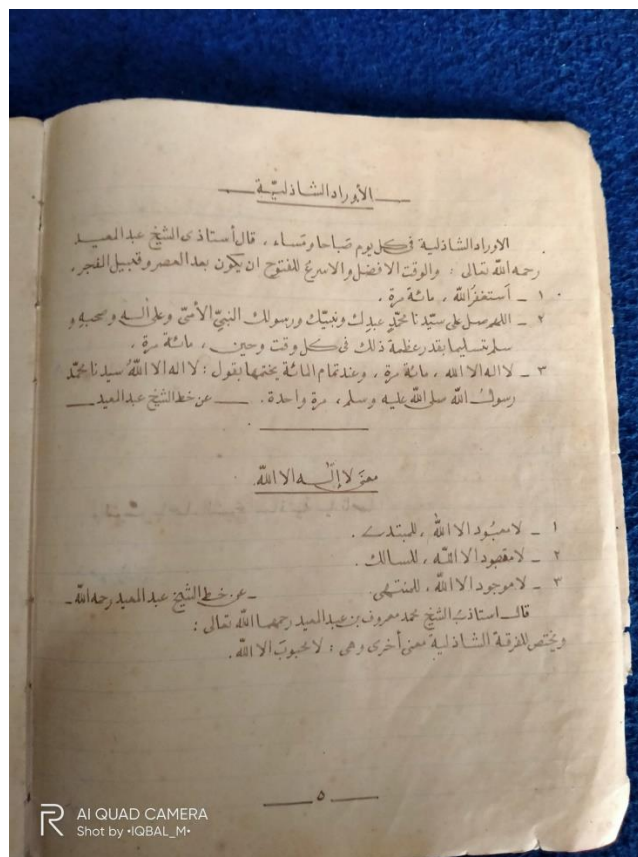 الأوراد الشاذليّة
الاوراد الشاذلية فى كل يوم صباحا ومساء ، قال أستاذى الشيخ عبد المعيد
رحمه الله تعالى : والوقت الافضل والاسرع للفتوح ان يكون بعد العصر وقبيل الفجر .
١ ـ أستغفر الله ، مائة مرة .
٢ ـ اللهم صل على سيّدنا محمّد عبدك ونبيّك ورسولك النبيّ الأمّى وعلى آله وصحبه و
سلم تسليما بقدر عظمة ذلك فى كل وقت وحين ، مائة مرة .
٣ ـ لا اله الا الله ، مائة مرة ، وعند تمام المائة يختمها بقول : لا اله الا اللّهُ سيدنا محمّد
رسولُ اللّه صلى اللّه عليه وسلم ، مرة واحدة . ــ عن خط الشيخ عبد المعيد ــ
معنى لا إلٰه الا اللّه
١ ـ لا معبُود الا اللّه ، للمبتدى .
٢ ـ لا مقصود الا اللّه ، للسالك .
٣ ـ لا موجود الا اللّه ، للمنتهى ـ عن خط الشيخ عبد المعيد رحمه اللّه ـ
قال استاذى الشيخ محمد معروف بن عبد المعيد رحمهما اللّه تعالى :
ويختص للفرقة الشاذلية معنى أخرى وهى : لا محبوبَ الا اللّه .
ــ ٥ ــ
AI QUAD CAMERA
Shot by •IQBAL_M•